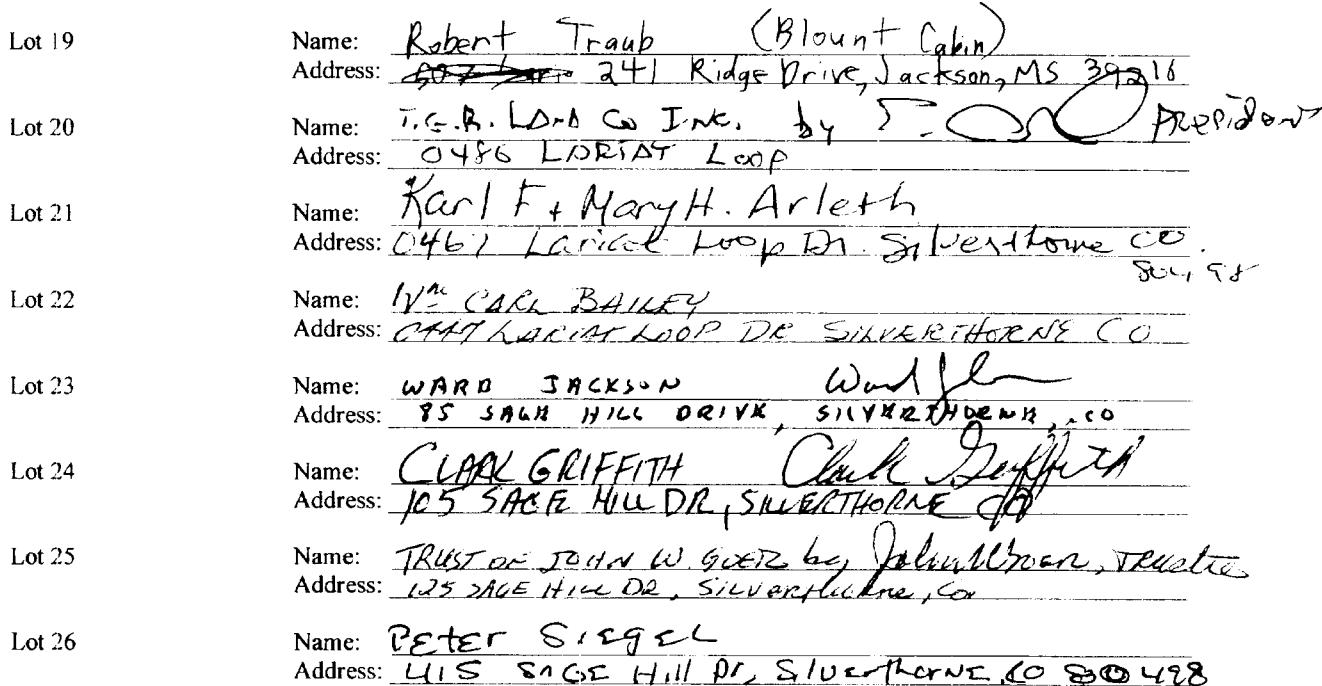 Lot 19 Name: Robert Traub (Blount Cabin)
Address: 241 Ridge Drive, Jackson, MS 39216
Lot 20 Name: T.G.R. LAnd Co Inc. by President
Address: 0486 LARIAT Loop
Lot 21 Name: Karl F + Mary H. Arleth
Address: 0467 Lariat Loop Dr. Silverthorne CO.
80498
Lot 22 Name: Wm CARL BAILEY
Address: 0447 LARIAT LOOP DR SILVERTHORNE CO
Lot 23 Name: WARD JACKSON
Address: 85 SAGE HILL DRIVE, SILVERTHORNE, CO
Lot 24 Name: CLARK GRIFFITH Clark Griffith
Address: 105 SAGE HILL DR, SILVERTHORNE CO
Lot 25 Name: TRUST OF JOHN W. GOER by John W Goer, Trustee
Address: 125 SAGE HILL DR, Silverthorne, Co
Lot 26 Name: PEtEr SIEgEL
Address: 415 SAGE Hill Dr, SilverthorNE, CO 80498